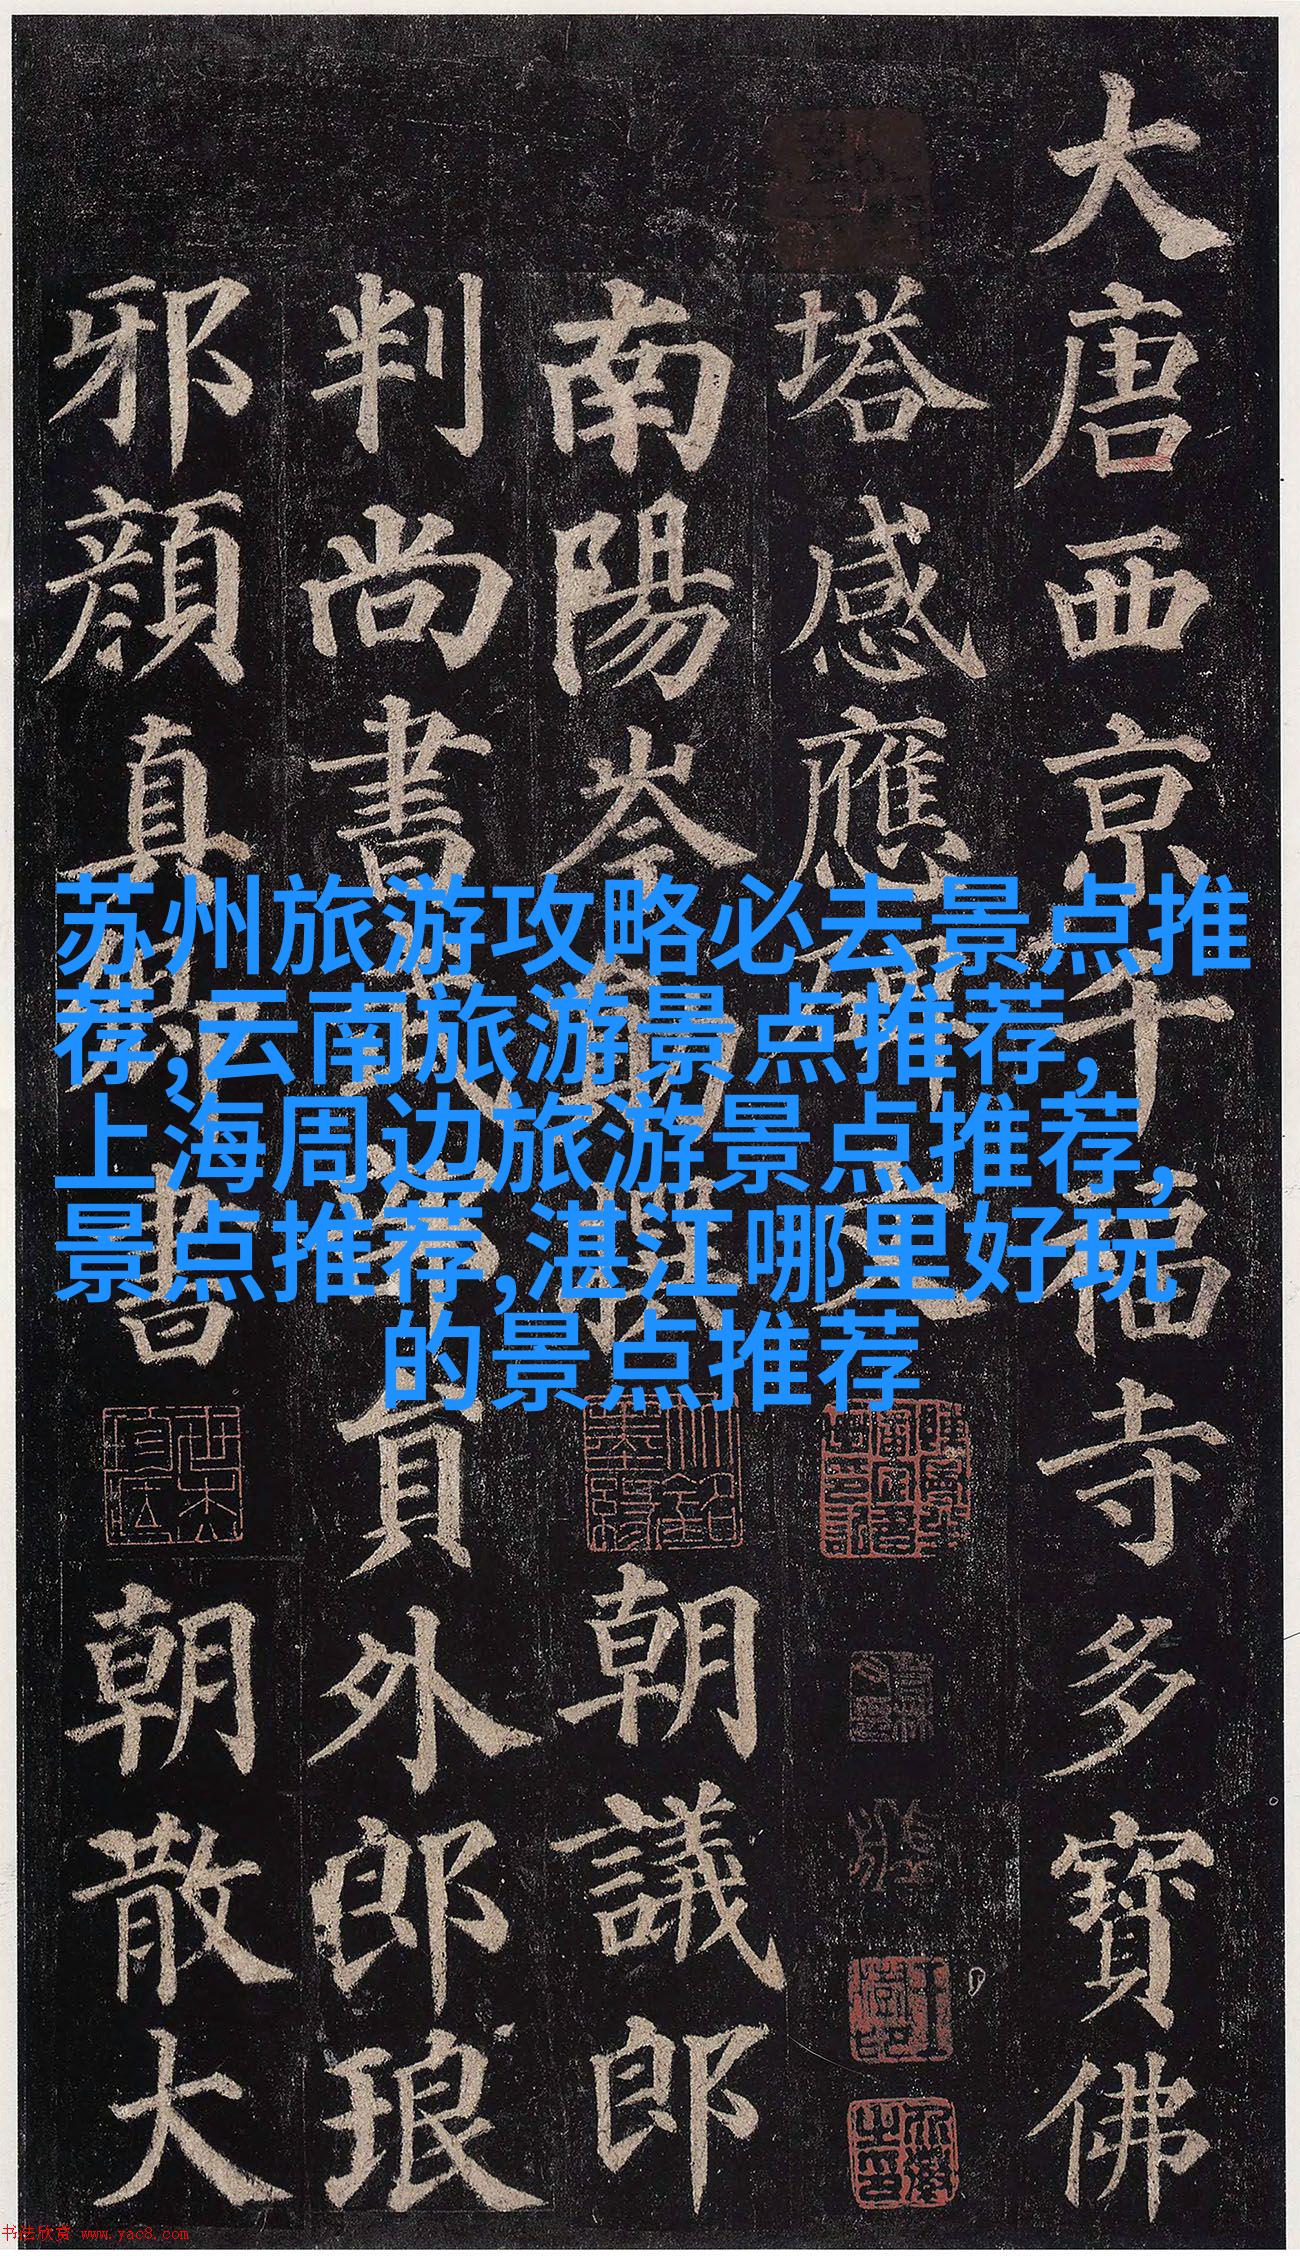 大唐西京千福寺多寶佛
塔感應碑文
南陽岑勛撰朝議郎
判尚書武部員外郎琅
邪顏真卿書朝散大
苏州旅游攻略必去景点推
荐,云南旅游景点推荐,
上海周边旅游景点推荐,
景点推荐,湛江哪里好玩
的景点推荐
书法欣赏 www.yac8.com